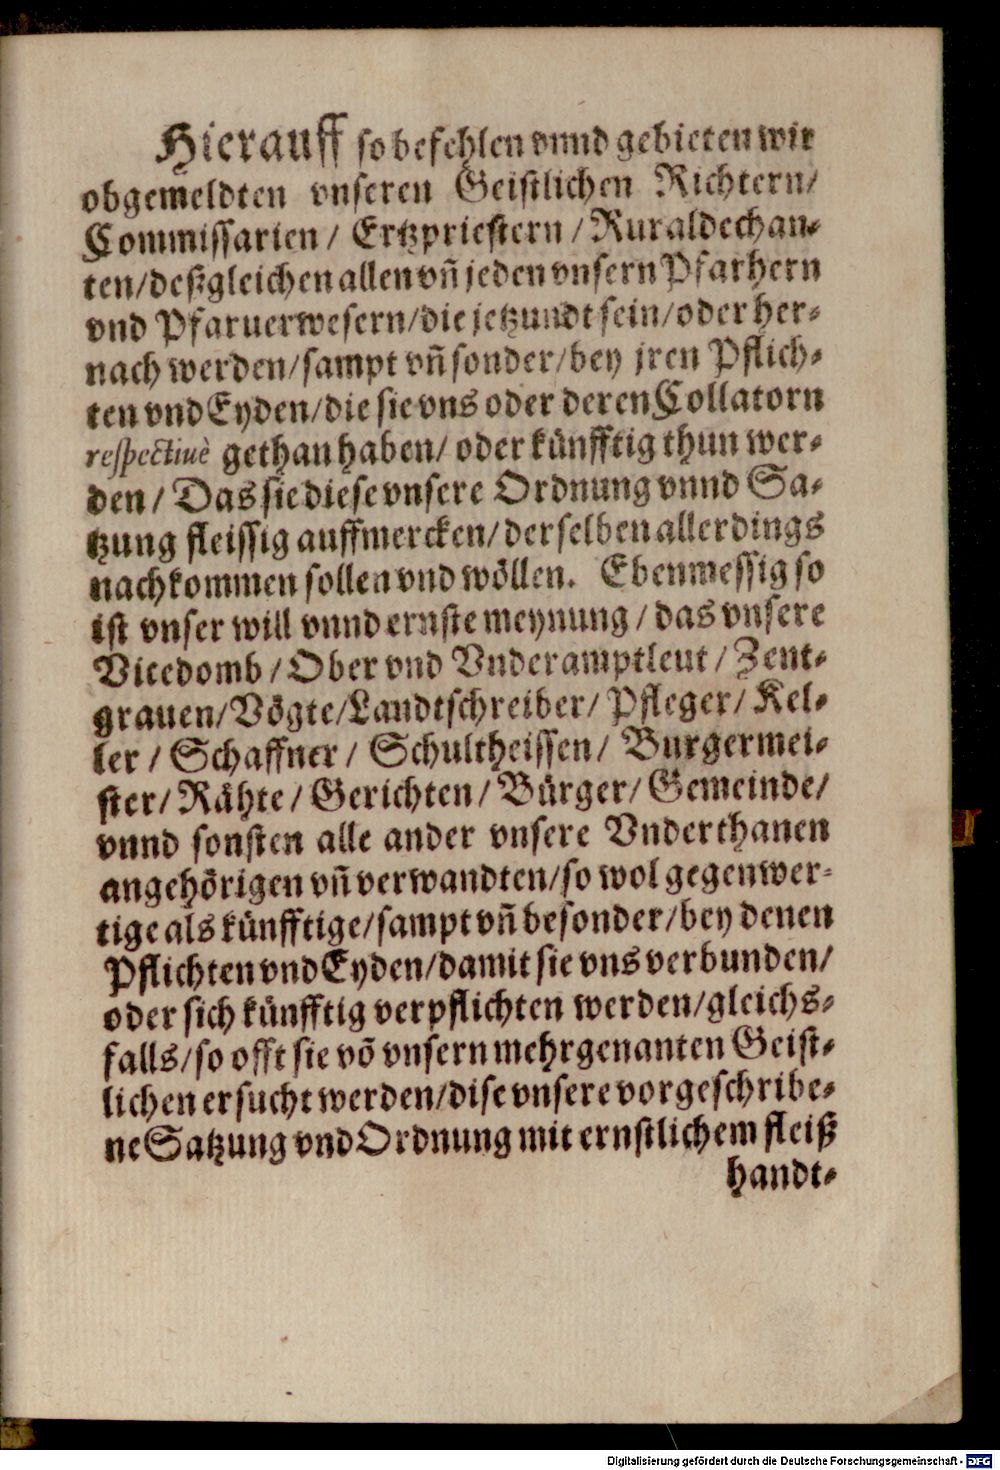 Hierauff so befehlen vnnd gebieten wir
obgemeldten vnseren Geistlichen Richtern/
Commissarien / Ertzpriestern / Ruraldechan-
ten/deßgleichen allen vñ jeden vnsern Pfarhern
vnd Pfaruerwesern/die jetzundt sein/oder her-
nach werden/sampt vñ sonder/bey jren Pflich-
ten vnd Eyden/die sie vns oder deren Collatorn
respectiuè gethan haben/ oder künfftig thun wer-
den / Das sie diese vnsere Ordnung vnnd Sa-
tzung fleissig auffmercken/ derselben allerdings
nachkommen sollen vnd wöllen. Ebenmessig so
ist vnser will vnnd ernste meynung / das vnsere
Vicedomb / Ober vnd Vnderamptleut / Zent-
grauen/Vögte/Landtschreiber/ Pfleger/ Kel-
ler / Schaffner / Schultheissen/ Burgermei-
ster/ Rähte / Gerichten / Bürger/ Gemeinde/
vnnd sonsten alle ander vnsere Vnderthanen
angehörigen vñ verwandten/so wol gegenwer-
tige als künfftige/sampt vñ besonder/bey denen
Pflichten vnd Eyden/damit sie vns verbunden/
oder sich künfftig verpflichten werden/gleichs-
falls/so offt sie võ vnsern mehrgenanten Geist-
lichen ersucht werden/dise vnsere vorgeschribe-
ne Satzung vnd Ordnung mit ernstlichem fleiß
handt-
Digitalisierung gefördert durch die Deutsche Forschungsgemeinschaft - DFG